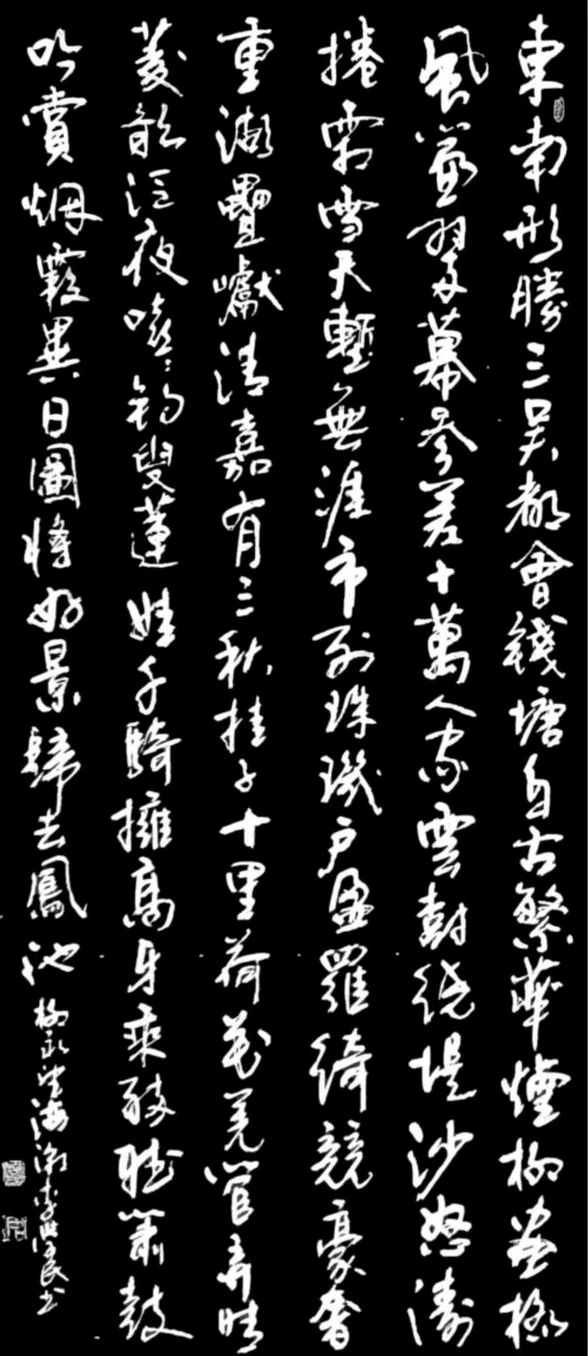 東南形勝三吳都會錢塘自古繁華煙柳畫橋
風簾翠幕參差十萬人家雲樹繞堤沙怒濤
捲霜雪天塹無涯市列珠璣戶盈羅綺競豪奢
重湖疊巘清嘉有三秋桂子十里荷花羌管弄晴
菱歌泛夜嘻嘻釣叟蓮娃千騎擁高牙乘醉聽簫鼓
吟賞烟霞異日圖將好景歸去鳳池
柳永望海潮 李 民書